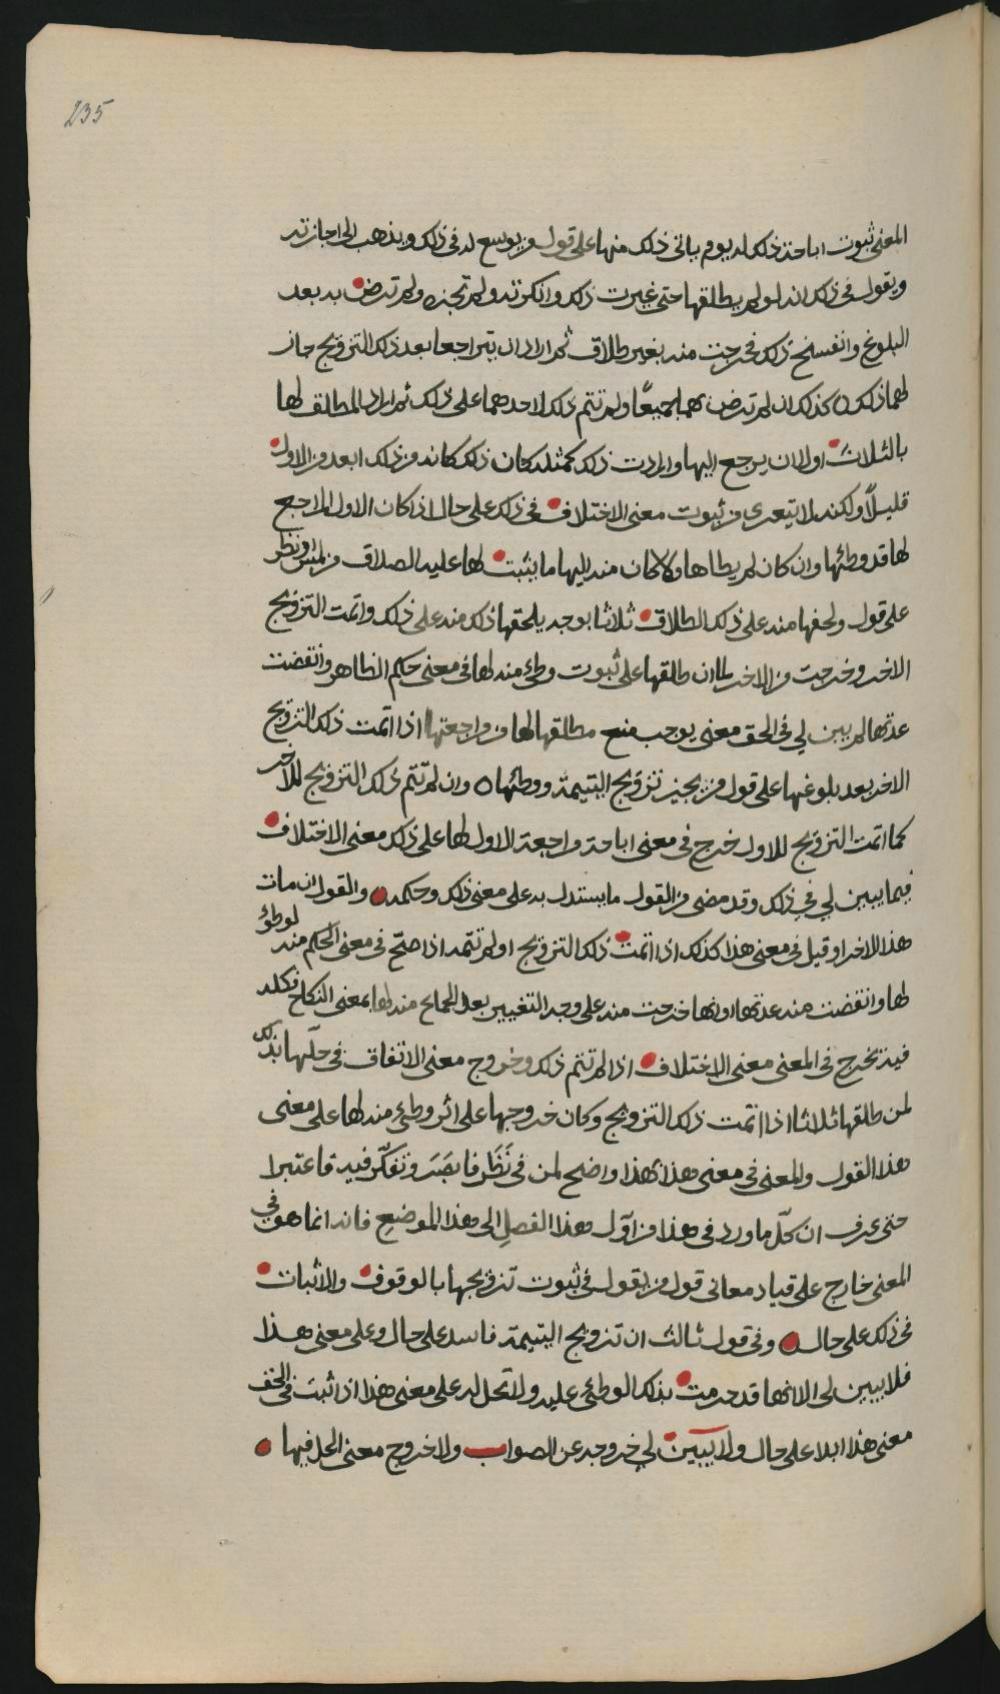 235
المعنى ثبوت اباحة ذلك له يوم ياتى ذلك منها على قول من يوسع له فى ذلك ويذهب الى اجازته
ويقول فى ذلك انه لو لم يطلقها حتى غيرت ذلك وانكرته ولم تجزه ولم ترض به بعد
البلوغ وانفسخ ذلك فخرجت منه بغير طلاق ثم اراد ان يتراجعا بعد ذلك التزويج جاز
لهما ذلك ه كذلك ان لم ترض بهما جميعًا ولم تتم ذلك لاحدهما على ذلك ثم اراد المطلق لها
بالثلاث اولا ان يرجع اليها وارادت ذلك كمثله كان ذلك كانه من ذلك ابعد من الاول
قليلاً ولكنه لا يتعرى من ثبوت معنى الاختلاف فى ذلك على حال اذا كان الاول المراجع
لها قد وطئها وان كان لم يطاها ولا كان منه اليها ما يثبت لها عليه الصداق من لمس او نظر
على قول ولحقها منه على ذلك الطلاق ثلاثا بوجه يلحقها ذلك منه على ذلك واتمت التزويج
الاخر وخرجت من الاخر لما ان طلقها على ثبوت وطئ منه لها فى معنى حكم الظاهر وانقضت
عدتها لم يبين لي فى الحق معنى يوجب منع مطلقها لها من مراجعتها اذا اتمت ذلك التزويج
الاخر بعد بلوغها على قول من يجيز تزويج اليتيمة ووطئها ه وان لم تتم ذلك التزويج للاخر
كما اتمت التزويج للاول خرج فى معنى اباحة مراجعة الاول لها على ذلك معنى الاختلاف
فيما يبين لي في ذلك وقد مضى من القول ما يستدل به على معنى ذلك وحكمه والقول ان مات
هذا الاخر او قيل فى معنى هذا كذلك اذا اتمت ذلك التزويج او لم تتمه اذا صح فى معنى الحكم منه لو طؤ
لها وانقضت منه عدتها او انها خرجت منه على وجه التغيير بعد الجماع منه لها بمعنى النكاح فكله
فيه تخرج فى المعنى معنى الاختلاف اذا لم تتم ذلك وخروج معنى الاتفاق فى حلّها بذلك
لمن طلقها ثلاثا اذا اتمت ذلك التزويج وكان خروجها على اثر وطئ منه لها على معنى
هذا القول والمعنى فى معنى هذا بهذا واضح لمن فى نَظَر فابصَرَ وتفكّر فيه فاعتبرا
حتى عرف ان كلّ ما ورد فى هذا من اوّل هذا الفصل الى هذا الموضع فانه انما هو في
المعنى خارج على قياد معانى قول من يقول فى ثبوت تزويجها بالوقوف والاثبات
فى ذلك على حال وفى قول ثالث ان تزويج اليتيمة فاسد على حال وعلى معنى هذا
فلا يبين لى الا انها قد حرمت بذلك الوطئ عليه ولا تحل له على معنى هذا اذا ثبت فى الحق
معنى هذا ابدا على حال ولا يبين لي خروجه عن الصواب ولا خروج معنى الحل فيها